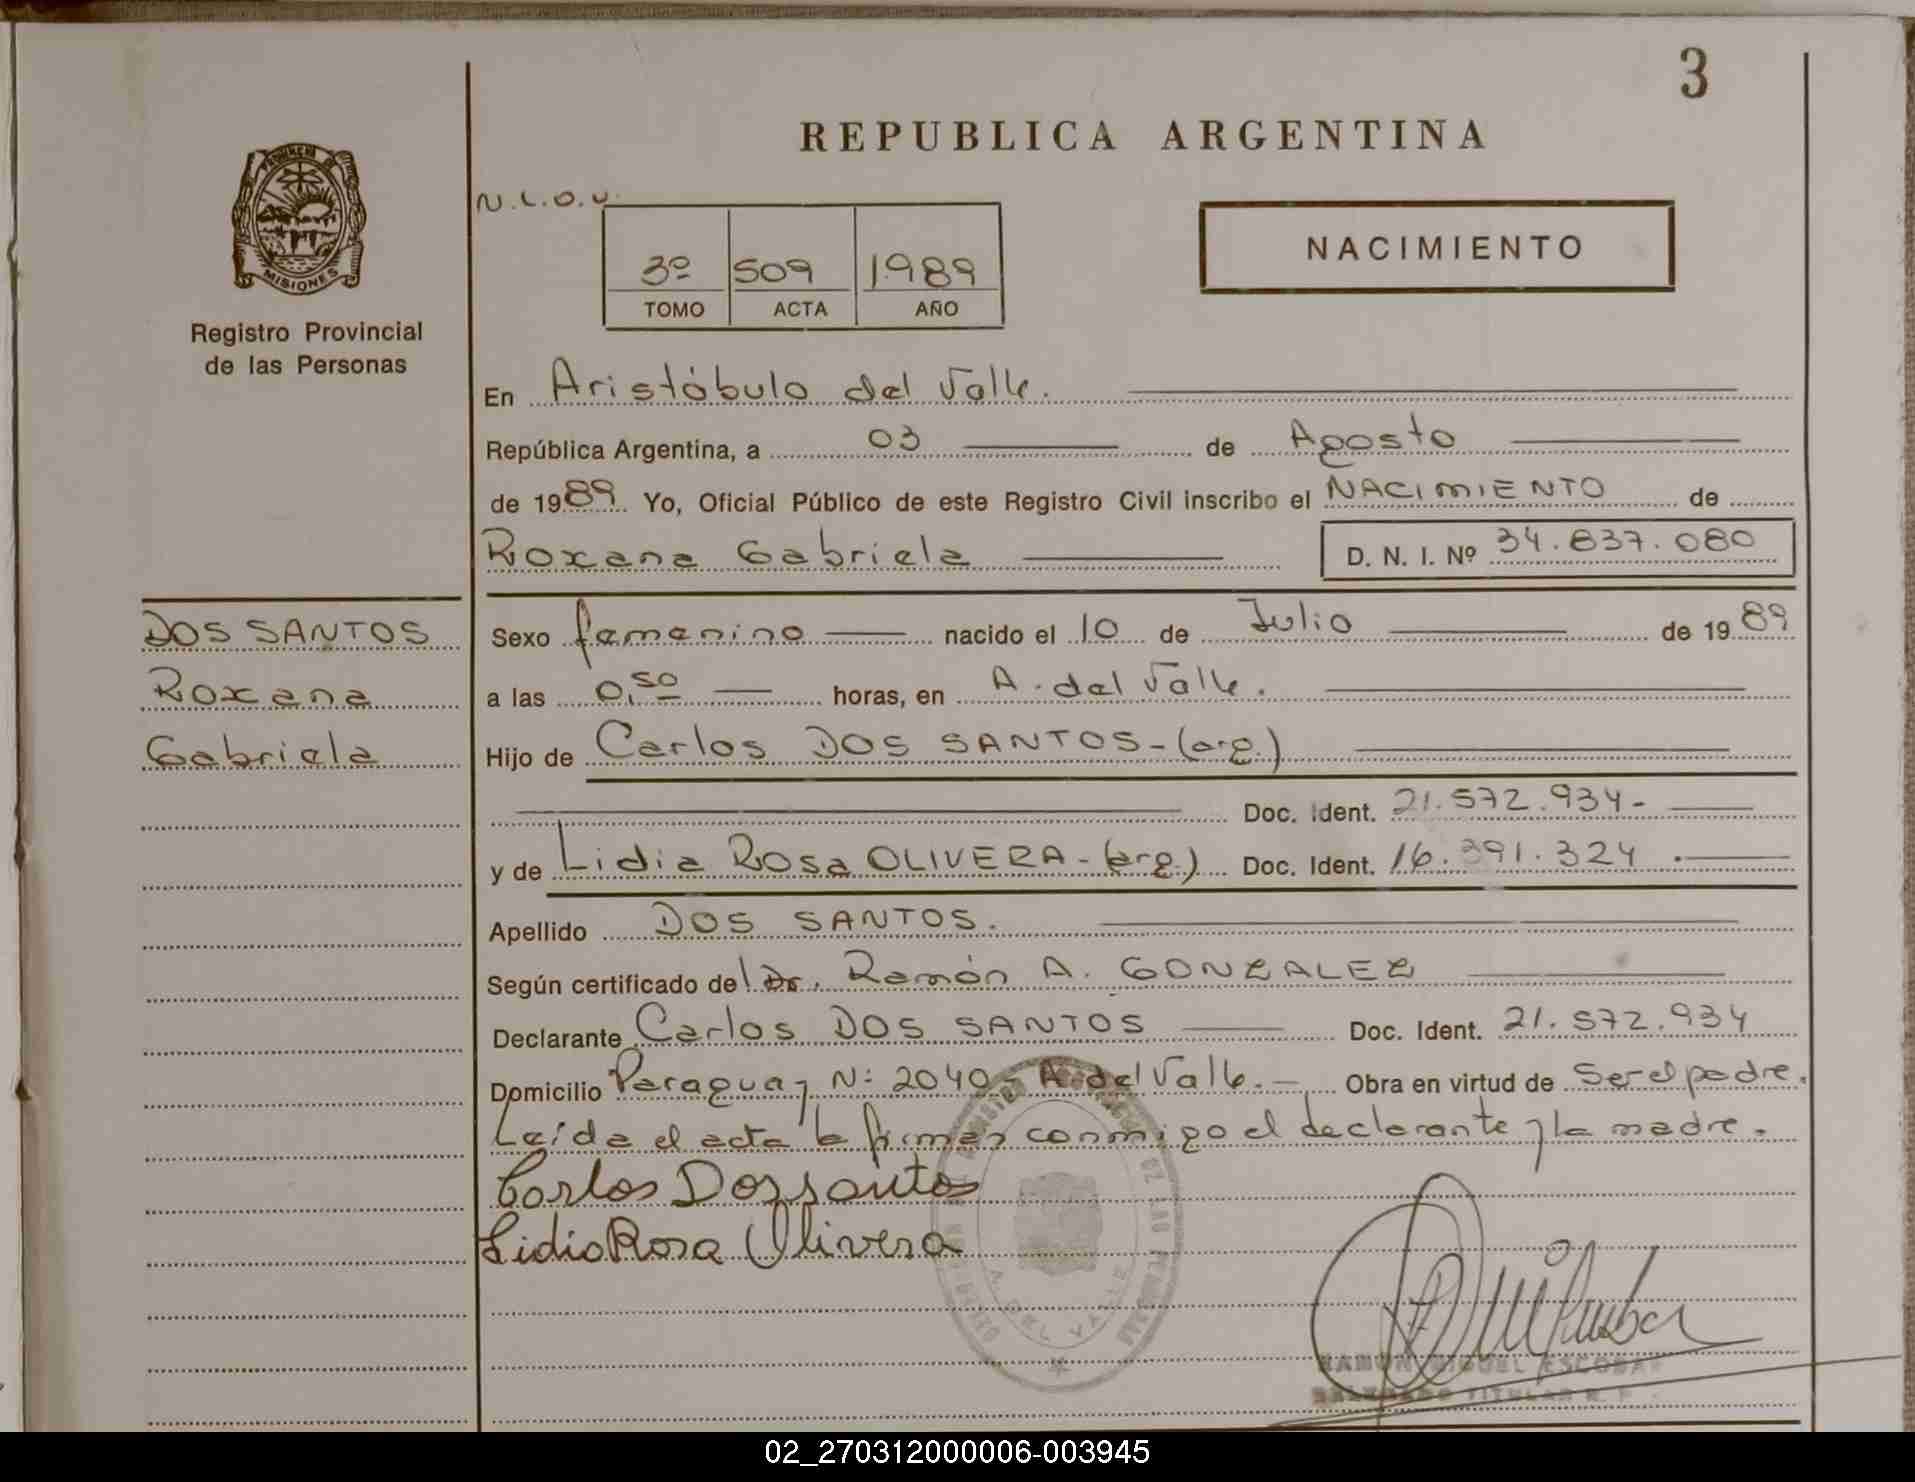 3
REPUBLICA ARGENTINA
PROVINCIA DE
MISIONES
Registro Provincial
de las Personas
N.L.O.U.
3º 509 1989
TOMO ACTA AÑO
NACIMIENTO
En Aristóbulo del Valle.
República Argentina, a 03 de Agosto
de 1989 Yo, Oficial Público de este Registro Civil inscribo el NACIMIENTO de
Roxana Gabriela D. N. I. Nº 34.837.080
DOS SANTOS
Roxana
Gabriela
Sexo femenino nacido el 10 de Julio de 1989
a las 0,50 horas, en A. del Valle.
Hijo de Carlos DOS SANTOS-(arg.)
Doc. Ident. 21.572.934-
y de Lidia Rosa OLIVERA-(arg.) Doc. Ident. 16.391.324.
Apellido DOS SANTOS.
Según certificado del Dr. Ramón A. GONZALEZ
Declarante Carlos DOS SANTOS Doc. Ident. 21.572.934
Domicilio Paraguay N: 2040, A. del Valle.- Obra en virtud de Ser el padre.
Leída el acta la firman conmigo el declarante y la madre.
Carlos Dossantos
Lidia Rosa Olivera
DE LAS PERSONAS
A. DEL VALLE
RAMON MIGUEL ESCOBAR
DELEGADO TITULAR R. P.
02_270312000006-003945